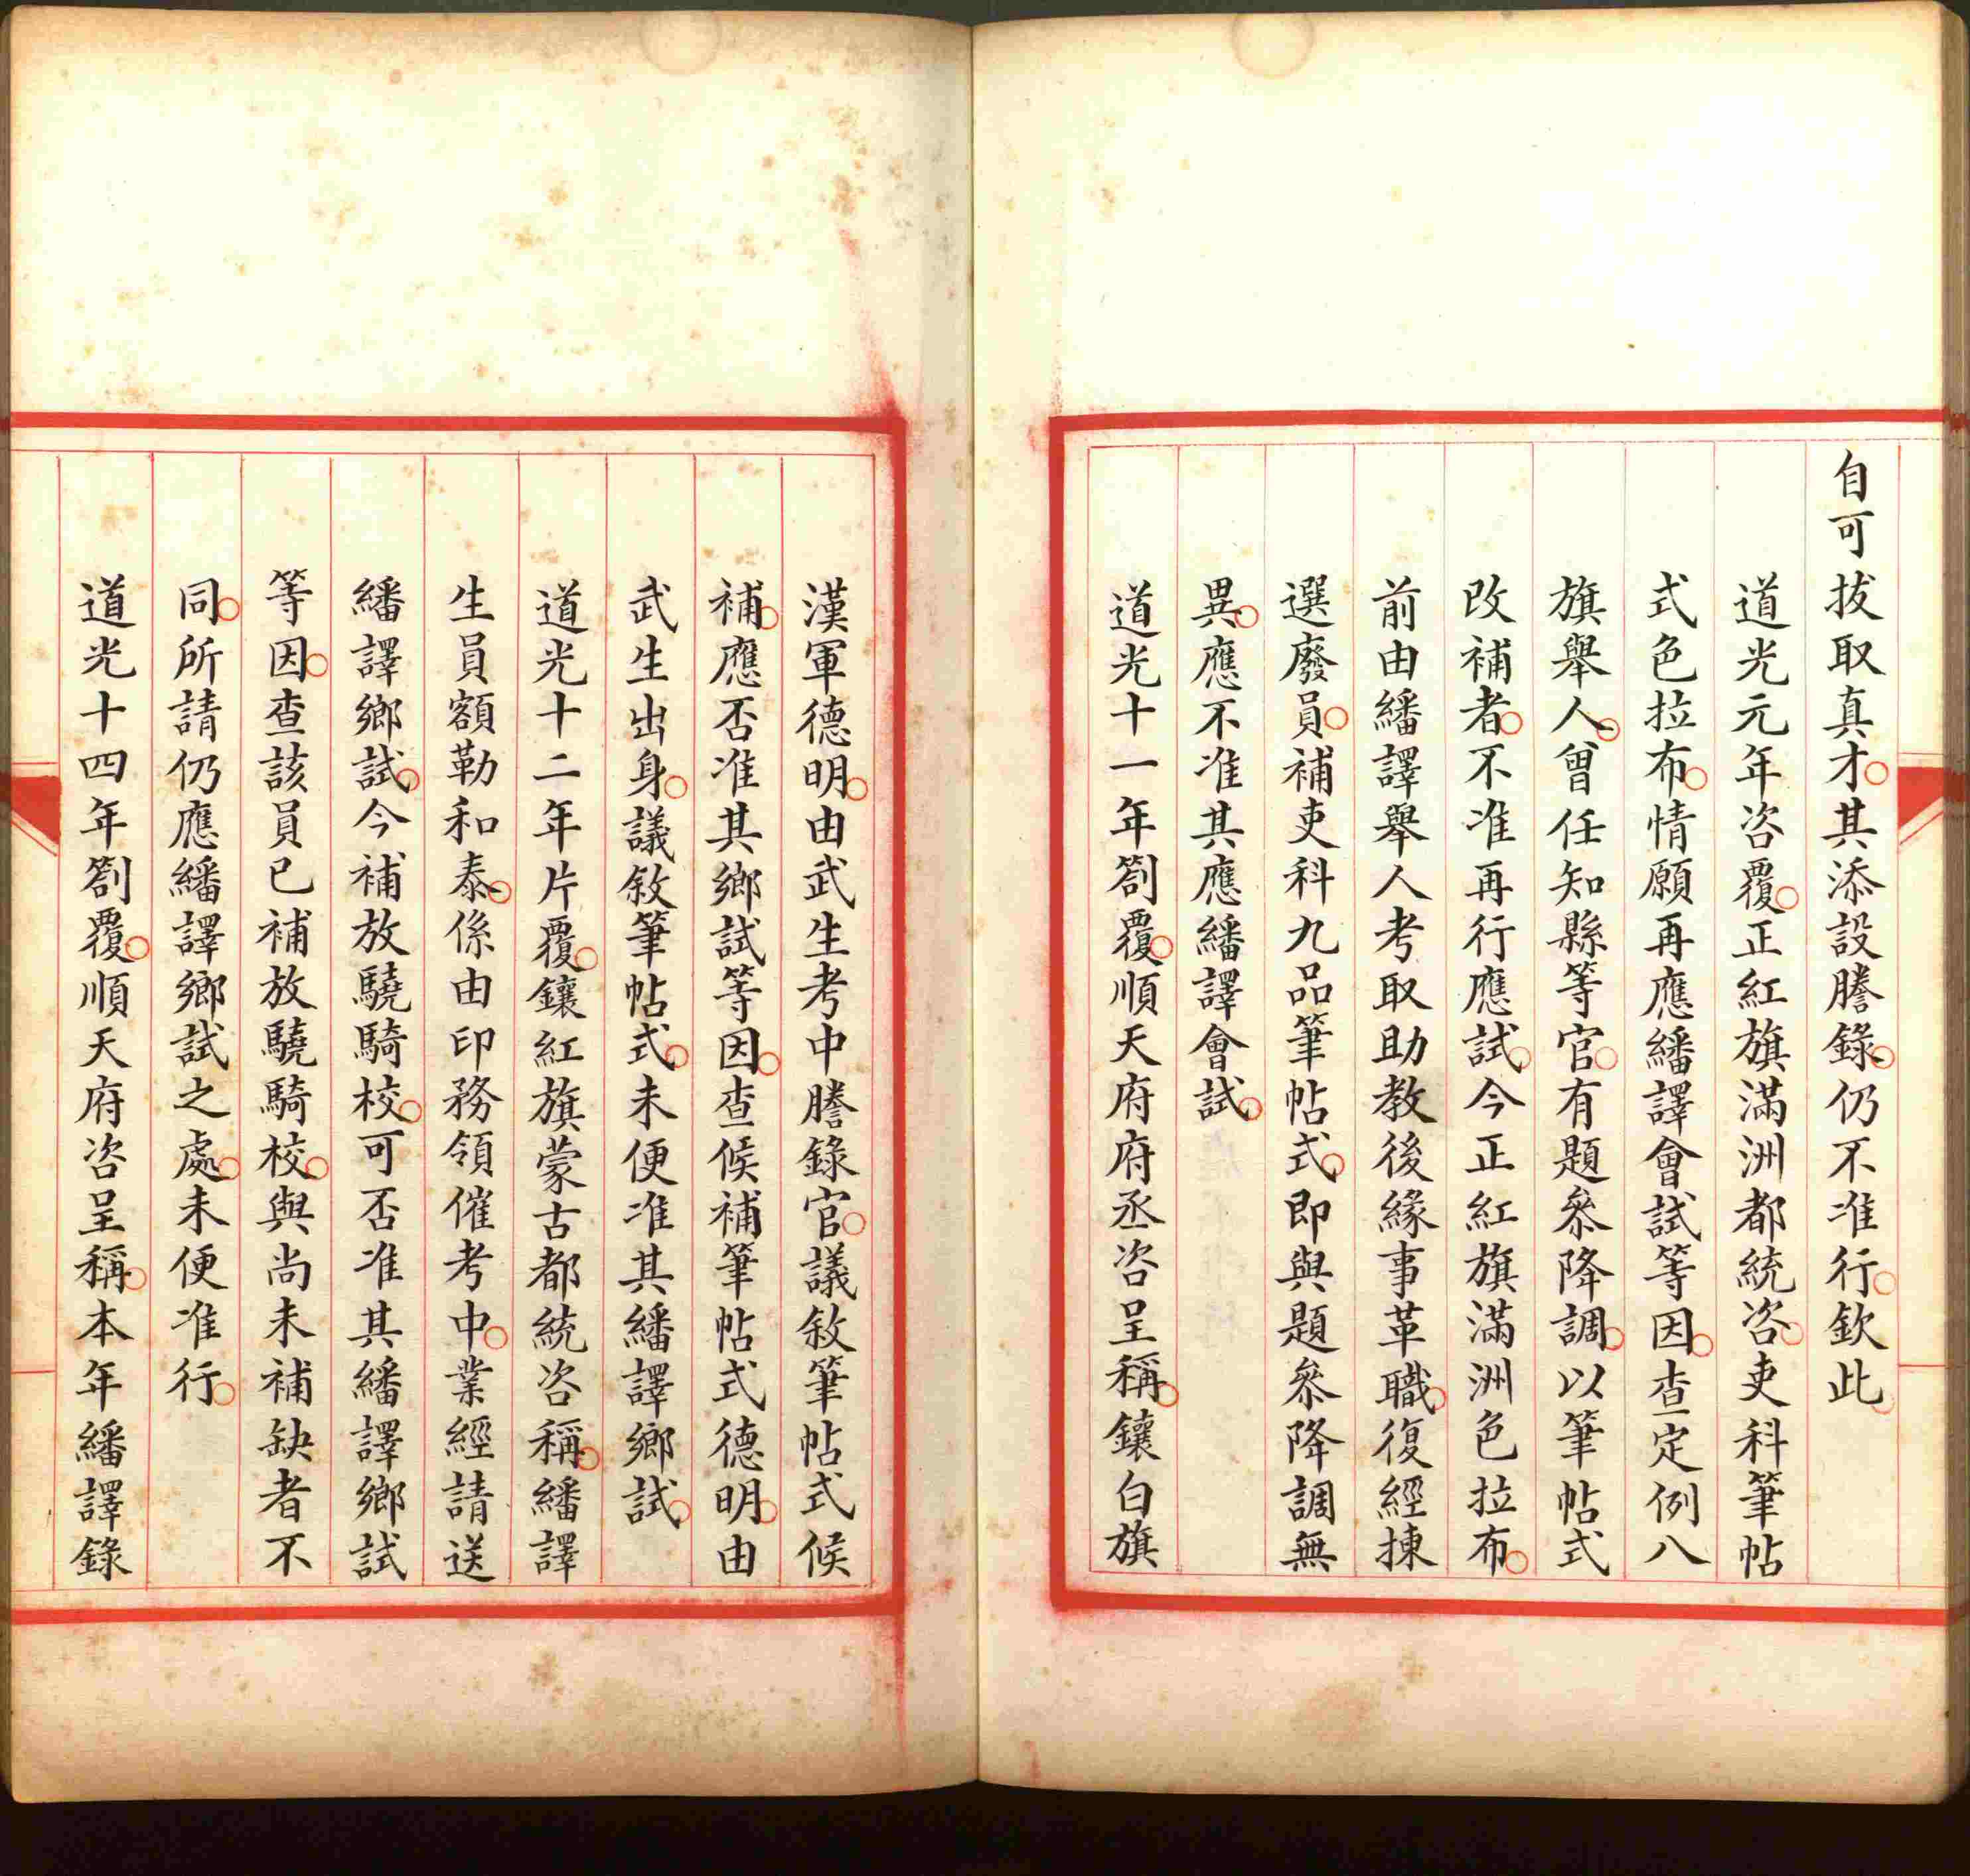 自可拔取真才○其添設謄錄○仍不准行○欽此○
道光元年咨覆○正紅旗滿洲都統咨○吏科筆帖
式色拉布○情願再應繙譯會試等因○查定例八
旗舉人○曾任知縣等官○有題叅降調○以筆帖式
改補者○不准再行應試○今正紅旗滿洲色拉布○
前由繙譯舉人考取助教後緣事革職○復經揀
選廢員○補吏科九品筆帖式○即與題叅降調無
異○應不准其應繙譯會試○
道光十一年劄覆○順天府府丞咨呈稱○鑲白旗
漢軍德明○由武生考中謄錄官○議敘筆帖式候
補○應否准其鄉試等因○查候補筆帖式德明○由
武生出身○議敘筆帖式○未便准其繙譯鄉試○
道光十二年片覆○鑲紅旗蒙古都統咨稱○繙譯
生員額勒和泰○係由印務領催考中○業經請送
繙譯鄉試○今補放驍騎校○可否准其繙譯鄉試
等因○查該員已補放驍騎校○與尚未補缺者不
同○所請仍應繙譯鄉試之處○未便准行○
道光十四年劄覆○順天府咨呈稱○本年繙譯錄